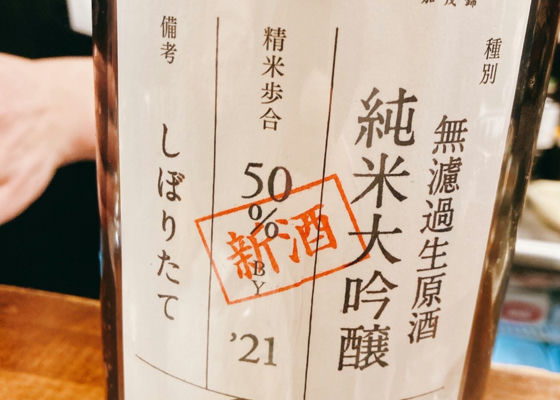 加茂錦
種別
無濾過生原酒
純米大吟醸
精米歩合
50%
新酒
BY
'21
備考
しぼりたて